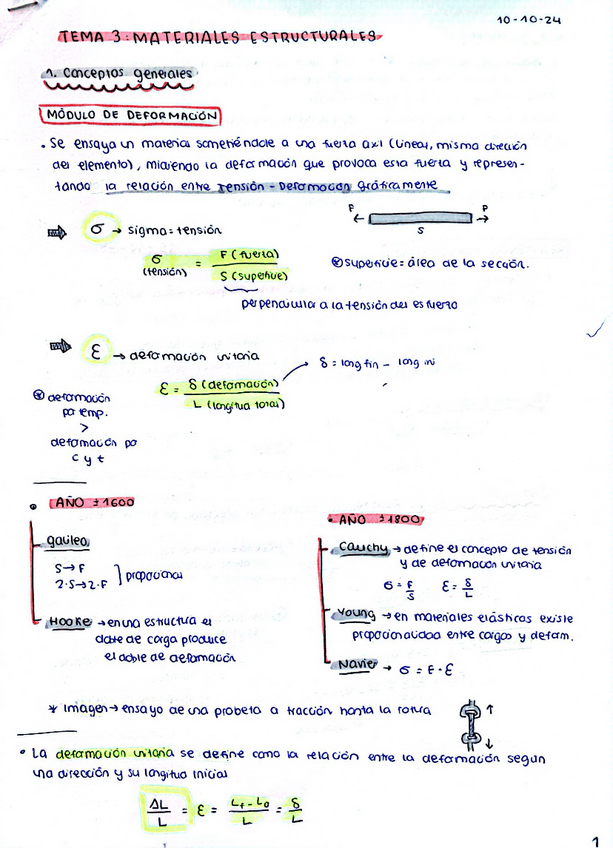 10-10-24
TEMA 3: MATERIALES ESTRUCTURALES
1. Conceptos generales
MÓDULO DE DEFORMACIÓN
• Se ensaya un material sometiéndole a una fuerza axl (lineal, misma dirección
del elemento), midiendo la deformación que provoca esta fuerza y represen-
tando la relación entre Tensión - Deformación gráficamente
P P
S
σ → sigma = tensión
σ (tensión) = F (fuerza) / S (superficie)
⊛ superficie = área de la sección.
perpendicular a la tensión del esfuerzo
ε → deformación unitaria
δ = long fin - long ini
ε = δ (deformación) / L (longitud total)
⊛ deformación
por temp.
>
deformación por
c y t
• AÑO ±1600
galileo
S → F
2·S → 2·F ] proporcional
Hooke → en una estructura el
doble de carga produce
el doble de deformación
• AÑO ±1800
Cauchy → define el concepto de tensión
y de deformación unitaria
σ = F/S ε = δ/L
Young → en materiales elásticos existe
proporcionalidad entre cargas y deform.
Navier → σ = E · ε
* Imagen → ensayo de una probeta a tracción hasta la rotura
• La deformación unitaria se define como la relación entre la deformación según
una dirección y su longitud inicial
ΔL/L = ε = Lf - L0 / L = δ/L
1